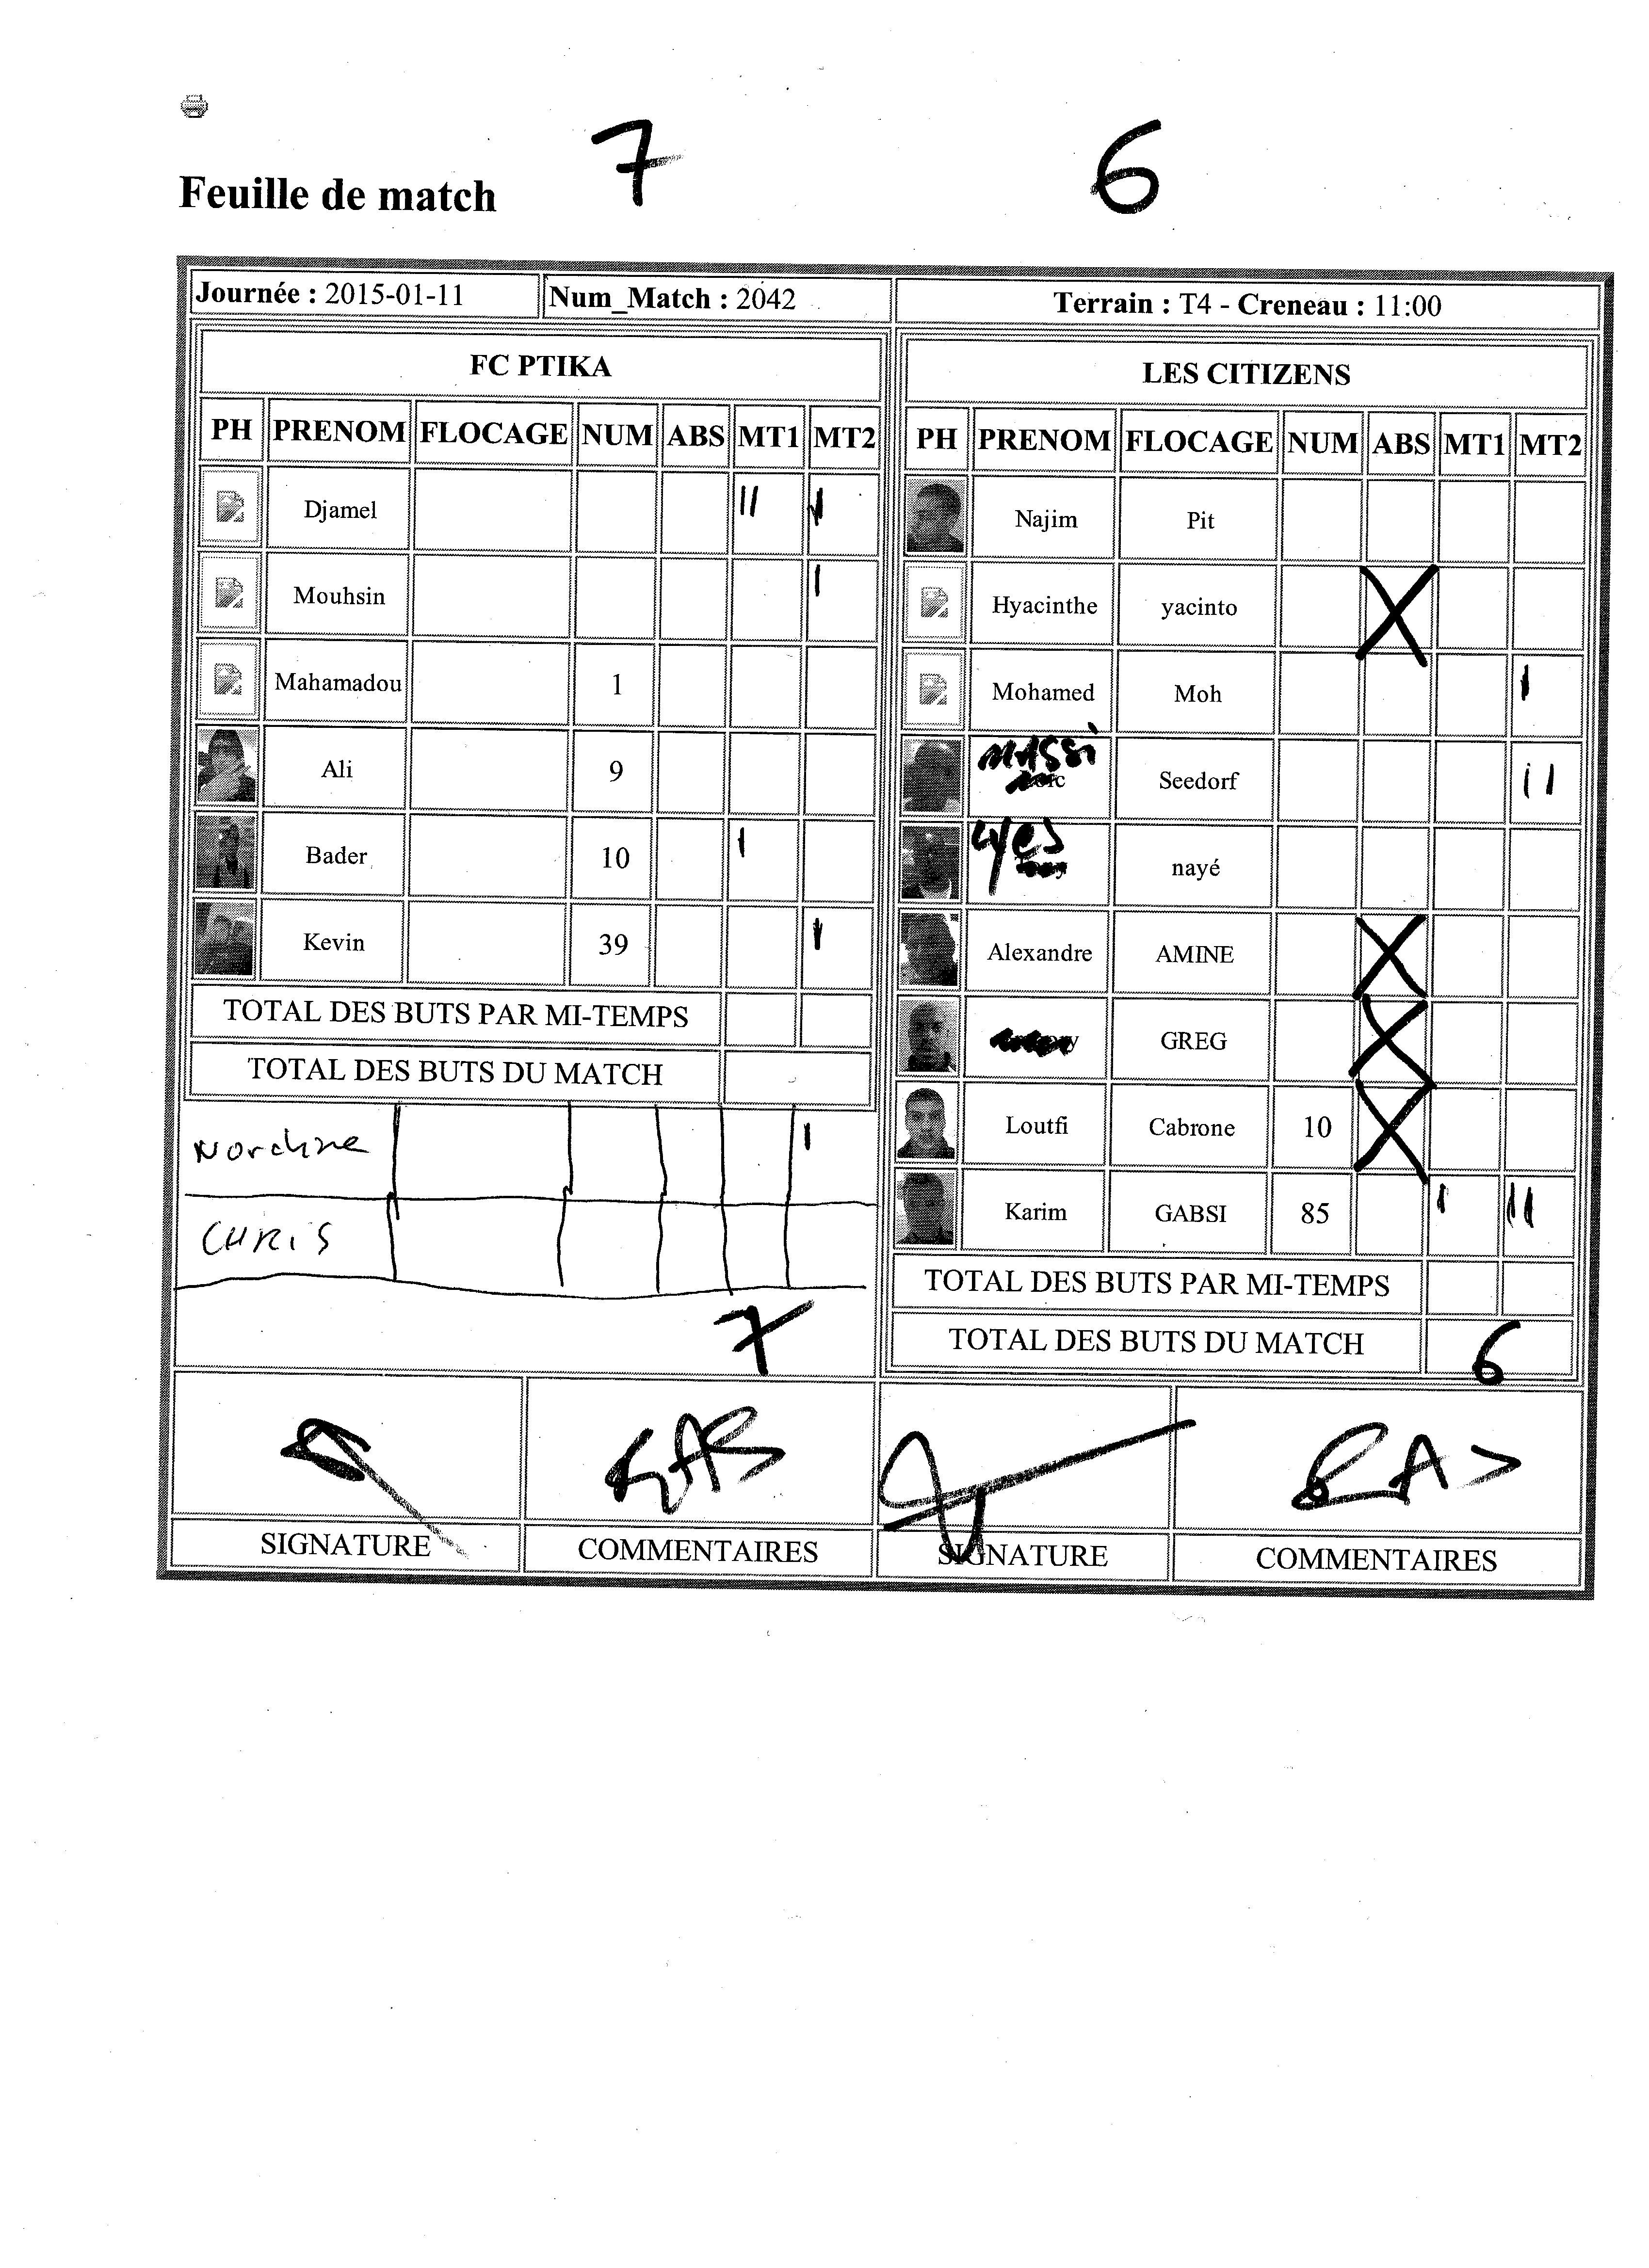 7 6
Feuille de match
Journée : 2015-01-11 Num_Match : 2042 Terrain : T4 - Creneau : 11:00
FC PTIKA
PH PRENOM FLOCAGE NUM ABS MT1 MT2
Djamel II I
Mouhsin I
Mahamadou 1
Ali 9
Bader 10 I
Kevin 39 I
TOTAL DES BUTS PAR MI-TEMPS
TOTAL DES BUTS DU MATCH
Nordine I
CHRIS
7
LES CITIZENS
PH PRENOM FLOCAGE NUM ABS MT1 MT2
Najim Pit
Hyacinthe yacinto X
Mohamed Moh I
MASSi Seedorf II
yes nayé
Alexandre AMINE X
GREG X
Loutfi Cabrone 10 X
Karim GABSI 85 I II
TOTAL DES BUTS PAR MI-TEMPS
TOTAL DES BUTS DU MATCH 6
RAS RAS
SIGNATURE COMMENTAIRES SIGNATURE COMMENTAIRES